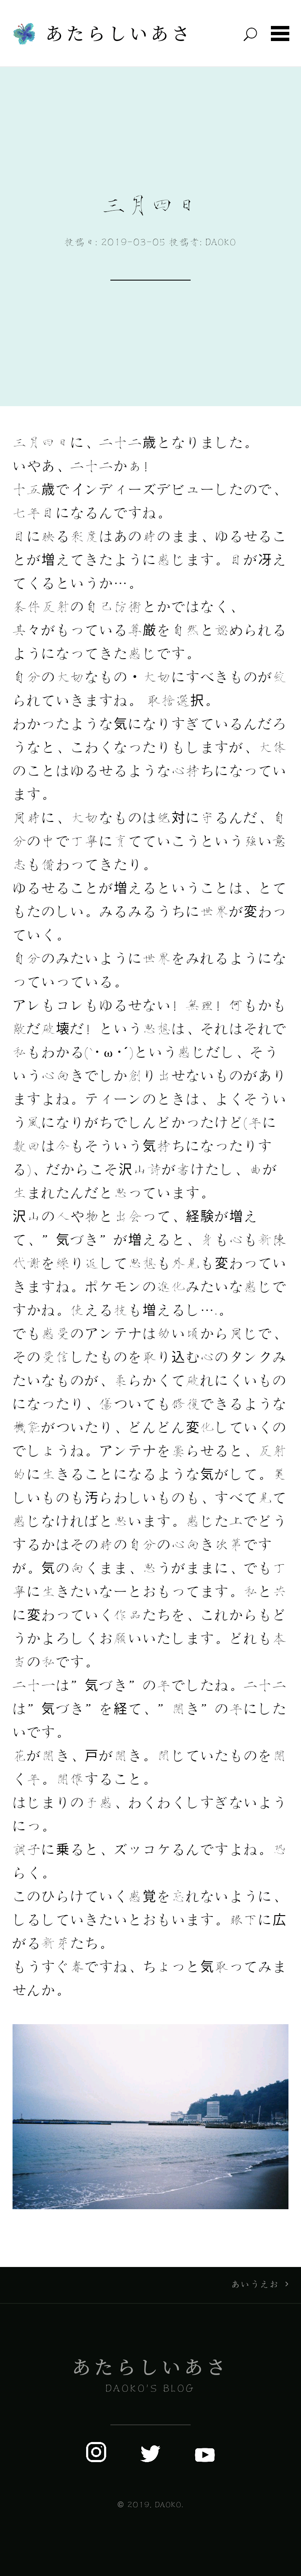 あたらしいあさ
三月四日
投稿日: 2019-03-05 投稿者: DAOKO
三月四日に、二十二歳となりました。
いやあ、二十二かぁ！
十五歳でインディーズデビューしたので、
七年目になるんですね。
目に映る彩度はあの時のまま、ゆるせるこ
とが増えてきたように感じます。目が冴え
てくるというか…。
条件反射の自己防衛とかではなく、
其々がもっている尊厳を自然と認められる
ようになってきた感じです。
自分の大切なもの・大切にすべきものが絞
られていきますね。 取捨選択。
わかったような気になりすぎているんだろ
うなと、こわくなったりもしますが、大体
のことはゆるせるような心持ちになってい
ます。
同時に、大切なものは絶対に守るんだ、自
分の中で丁寧に育てていこうという強い意
志も備わってきたり。
ゆるせることが増えるということは、とて
もたのしい。みるみるうちに世界が変わっ
ていく。
自分のみたいように世界をみれるようにな
っていっている。
アレもコレもゆるせない！無理！何もかも
敵だ破壊だ！という思想は、それはそれで
私もわかる(`･ω･´)という感じだし、そう
いう心向きでしか創り出せないものがあり
ますよね。ティーンのときは、よくそうい
う風になりがちでしんどかったけど(年に
数回は今もそういう気持ちになったりす
る)、だからこそ沢山詩が書けたし、曲が
生まれたんだと思っています。
沢山の人や物と出会って、経験が増え
て、”気づき”が増えると、身も心も新陳
代謝を繰り返して思想も外見も変わってい
きますね。ポケモンの進化みたいな感じで
すかね。使える技も増えるし…。
でも感受のアンテナは幼い頃から同じで、
その受信したものを取り込む心のタンクみ
たいなものが、柔らかくて破れにくいもの
になったり、傷ついても修復できるような
機能がついたり、どんどん変化していくの
でしょうね。アンテナを曇らせると、反射
的に生きることになるような気がして。美
しいものも汚らわしいものも、すべて見て
感じなければと思います。感じた上でどう
するかはその時の自分の心向き次第です
が。気の向くまま、思うがままに、でも丁
寧に生きたいなーとおもってます。私と共
に変わっていく作品たちを、これからもど
うかよろしくお願いいたします。どれも本
当の私です。
二十一は”気づき”の年でしたね。二十二
は”気づき”を経て、”開き”の年にした
いです。
花が開き、戸が開き。閉じていたものを開
く年。開催すること。
はじまりの予感、わくわくしすぎないよう
にっ。
調子に乗ると、ズッコケるんですよね。恐
らく。
このひらけていく感覚を忘れないように、
しるしていきたいとおもいます。眼下に広
がる新芽たち。
もうすぐ春ですね、ちょっと気取ってみま
せんか。
あいうえお >
あたらしいあさ
DAOKO'S BLOG
© 2019. DAOKO.